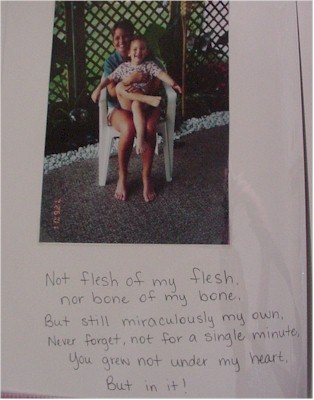 Not flesh of my flesh,
nor bone of my bone.
But still miraculously my own.
Never forget, not for a single minute,
You grew not under my heart,
But in it!